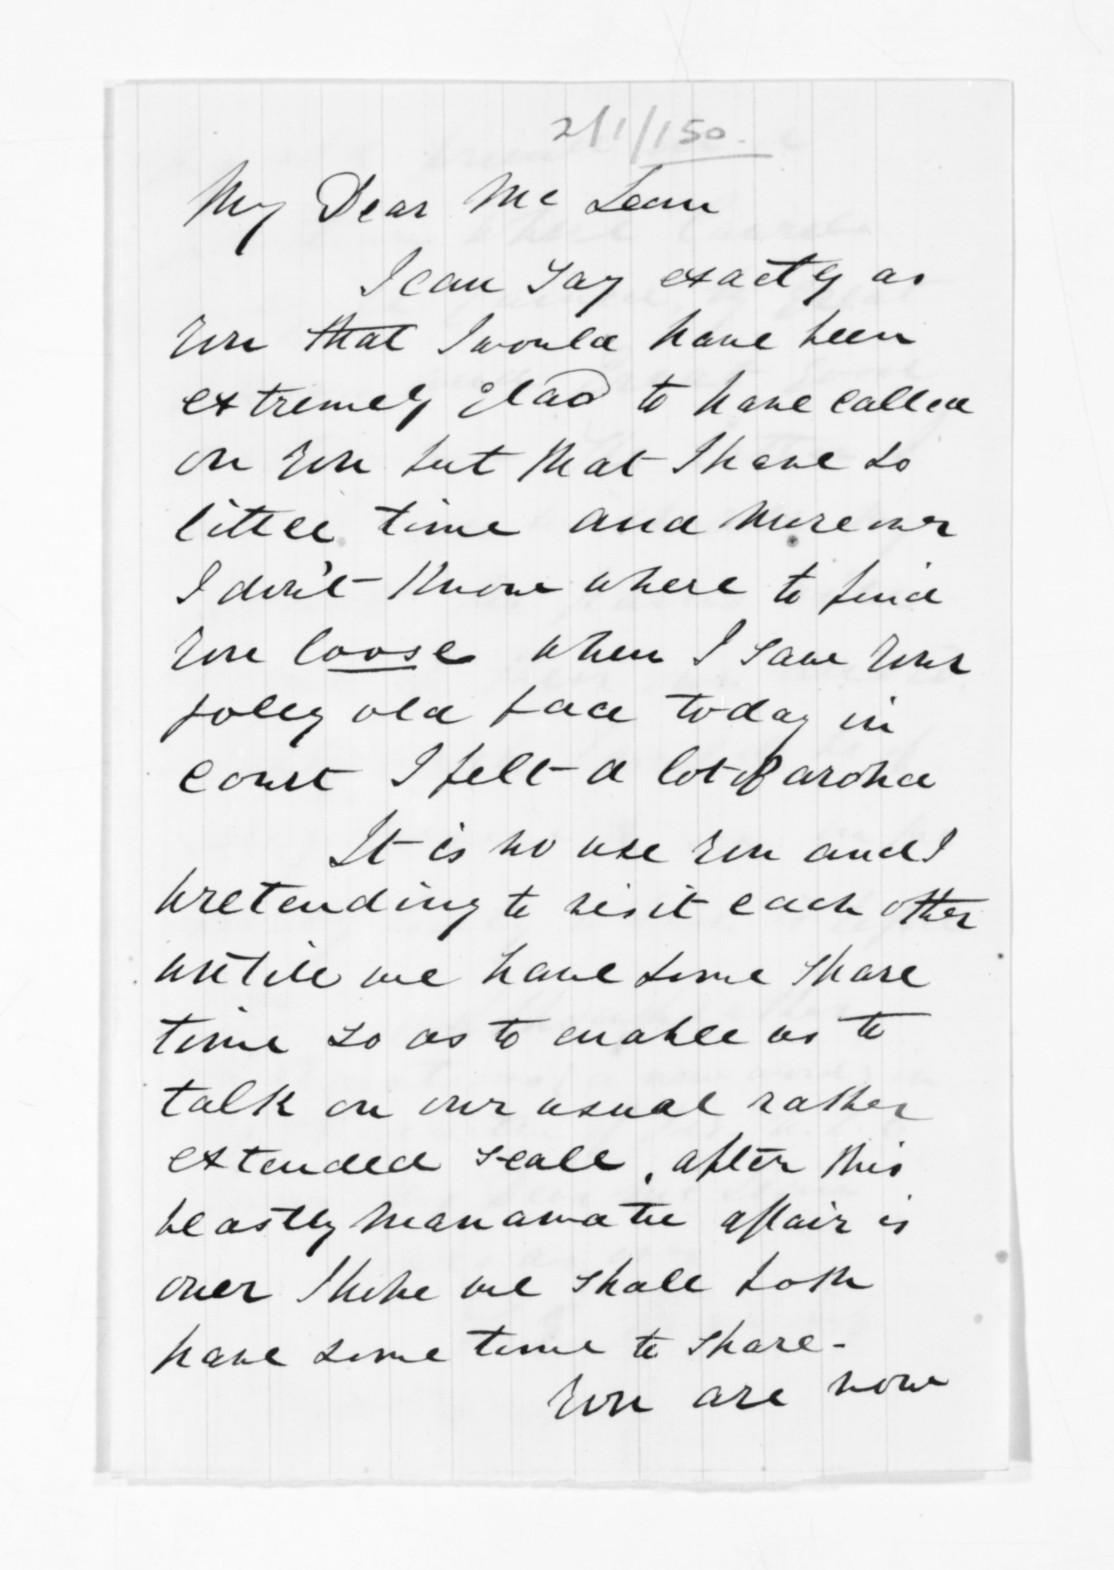 2/1/150.
My Dear McLean
I can say exactly as
you that I would have been
extremely glad to have called
on you but that I have so
little time and moreover
I don't know where to find
you loose when I saw your
jolly old face today in
court I felt a lot of aroha
It is no use you and I
pretending to visit each other
until we have some spare
time so as to enable us to
talk on our usual rather
extended scale, after this
beastly Manawatu affair is
over I hope we shall both
have some time to spare-
You are now